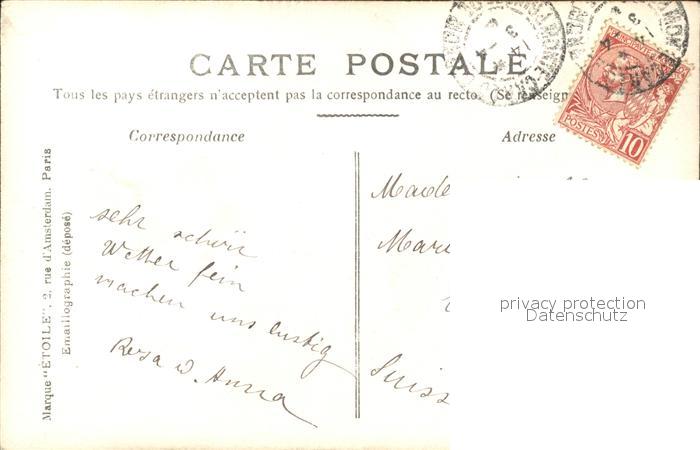 CARTE POSTALE
Tous les pays étrangers n'acceptent pas la correspondance au recto. (Se renseign
Correspondance
Adresse
Marque "ÉTOILE", 2, rue d'Amsterdam, Paris
Emaillographie (déposé)
POSTES
10
sehr schön
Wetter fein
machen uns lustig
Rosa u. Anna
Made
Mari
Suiss
privacy protection
Datenschutz